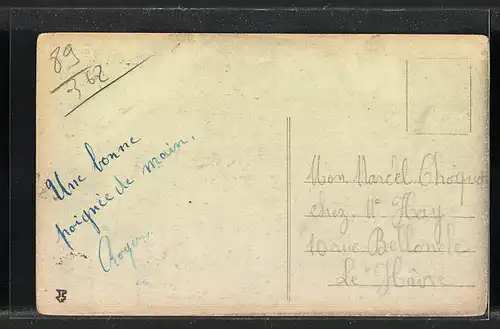 89
362
Une bonne
poignée de main.
Roger
Mon Marcel Choquet
chez Mr Hay
10 rue Bellonde
Le Hâvre